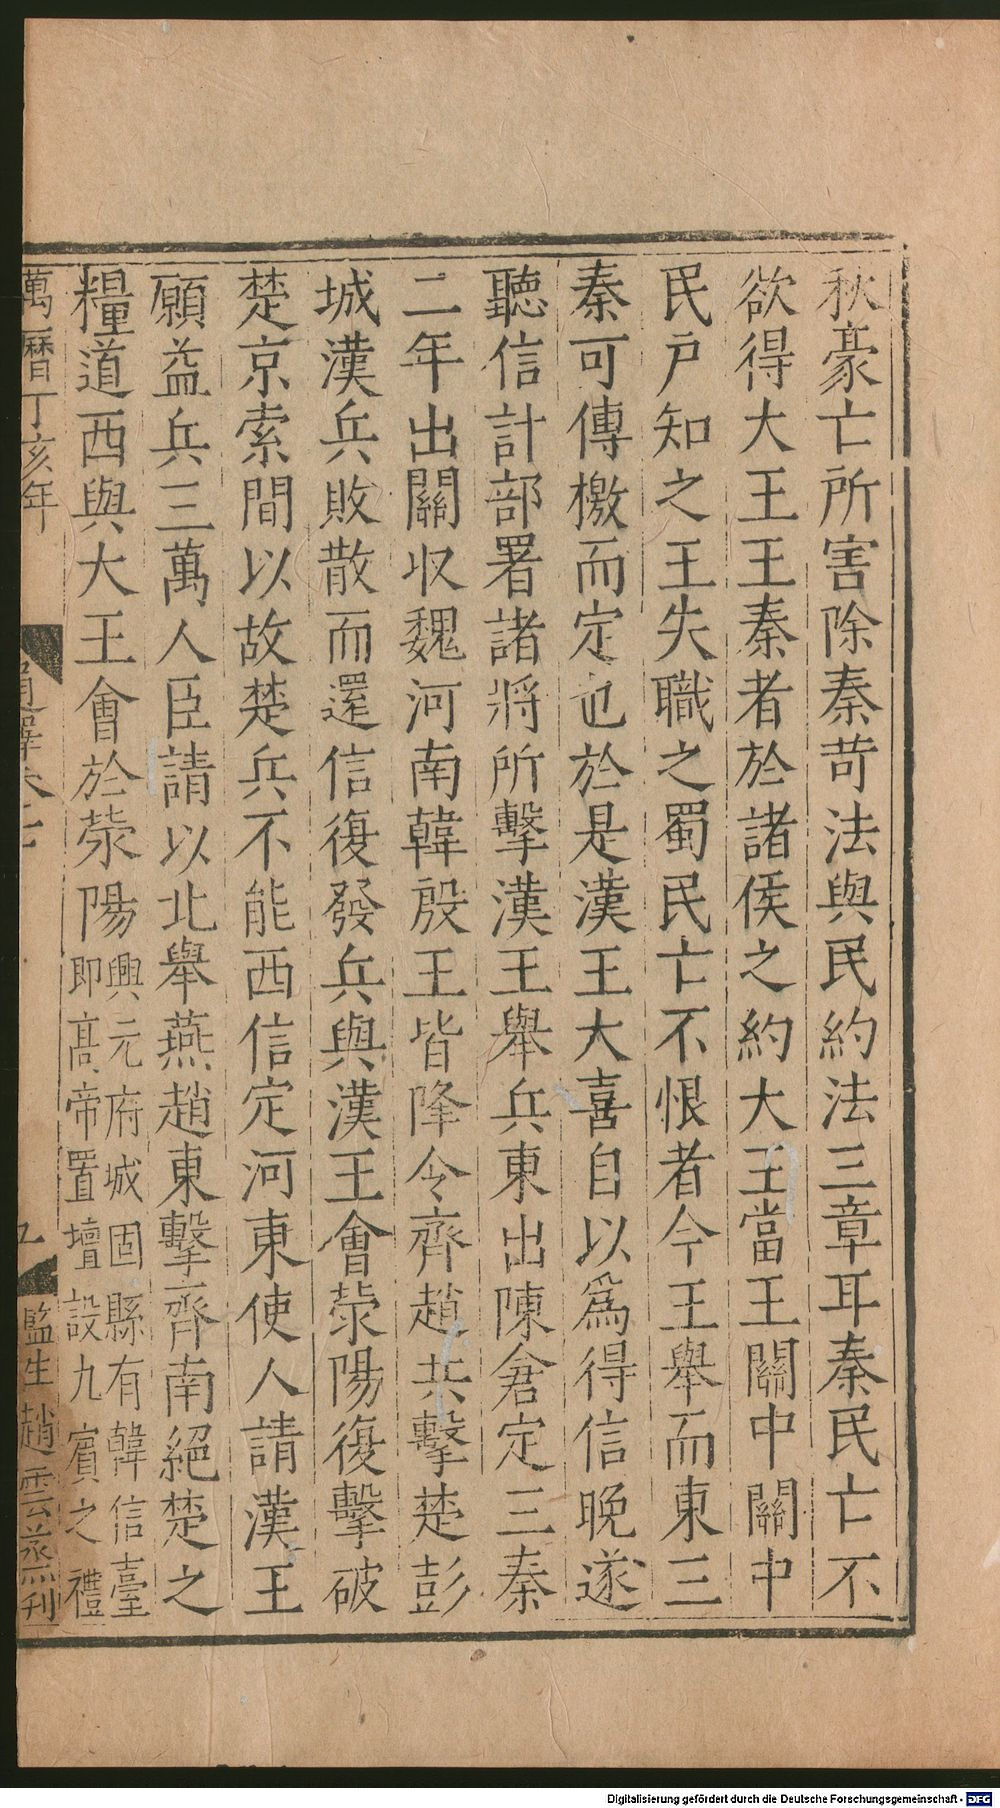 秋豪亡所害除秦苛法與民約法三章耳秦民亡不
欲得大王王秦者於諸侯之約大王當王關中關中
民戶知之王失職之蜀民亡不恨者今王舉而東三
秦可傳檄而定也於是漢王大喜自以爲得信晚遂
聽信計部署諸將所擊漢王舉兵東出陳倉定三秦
二年出關収魏河南韓殷王皆降令齊趙共擊楚彭
城漢兵敗散而還信復發兵與漢王會滎陽復擊破
楚京索間以故楚兵不能西信定河東使人請漢王
願益兵三萬人臣請以北舉燕趙東擊齊南絕楚之
糧道西與大王會於滎陽
興元府城固縣有韓信臺
即髙帝置壇設九賓之禮
萬曆丁亥年
通釋卷七
五
監生趙雲烝刊
Digitalisierung gefördert durch die Deutsche Forschungsgemeinschaft - DFG